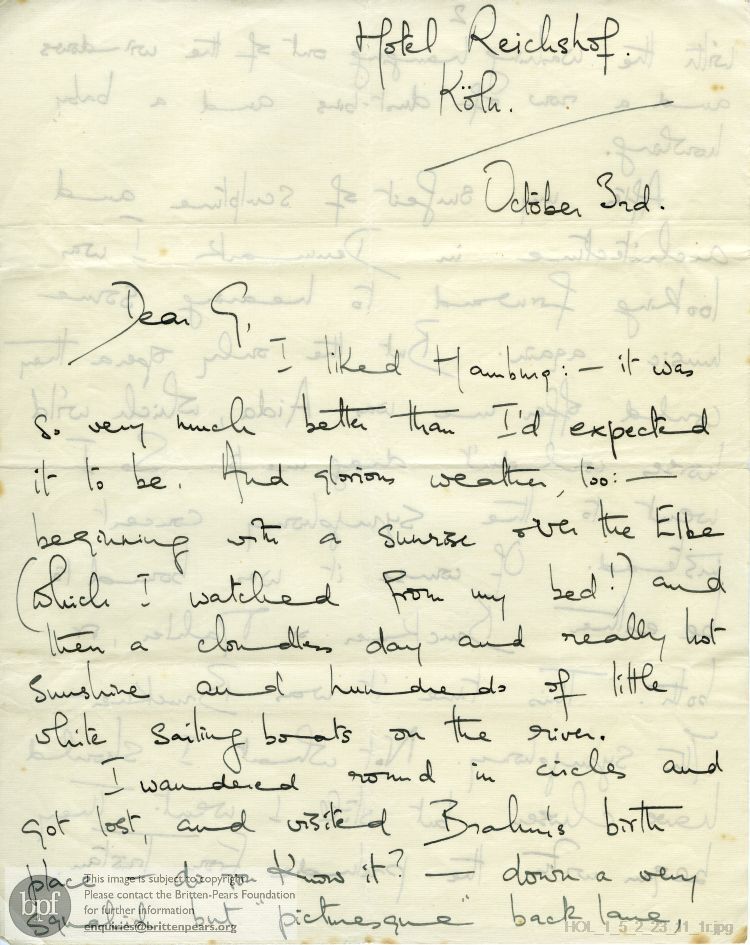 Hotel Reichshof.
Köln.
October 3rd.
Dear G,
I liked Hamburg: — it was
so very much better than I'd expected
it to be. And glorious weather, too: —
beginning with a sunrise over the Elbe
(which I watched from my bed!) and
then a cloudless day and really hot
sunshine and hundreds of little
white sailing boats on the river.
I wandered round in circles and
got lost, and visited Brahms's birth
place — do you know it? — down a very
squalid but "picturesque" back lane,
bpf
This image is subject to copyright.
Please contact the Britten-Pears Foundation
for further information
enquiries@brittenpears.org
HOL_1_5_2_23_J1_1r.jpg